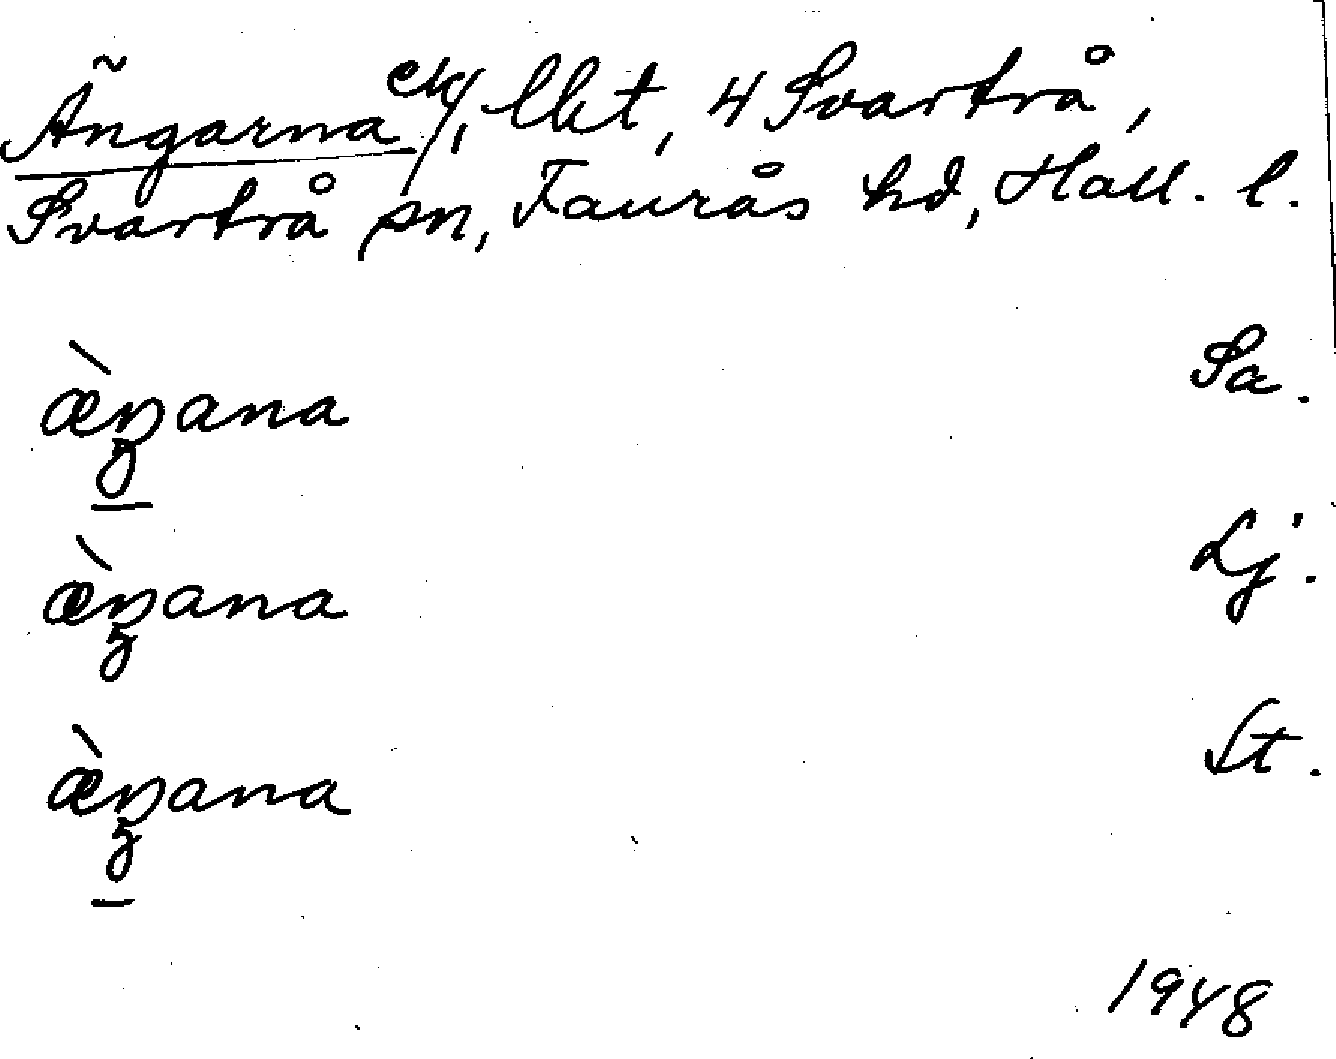 Ängarna ek/, lht, 4 Svartrå,
Svartrå sn, Faurås hd, Hall. l.
æ̀ŋana Sa.
æ̀ŋana Lj.
æ̀ŋana St.
1948